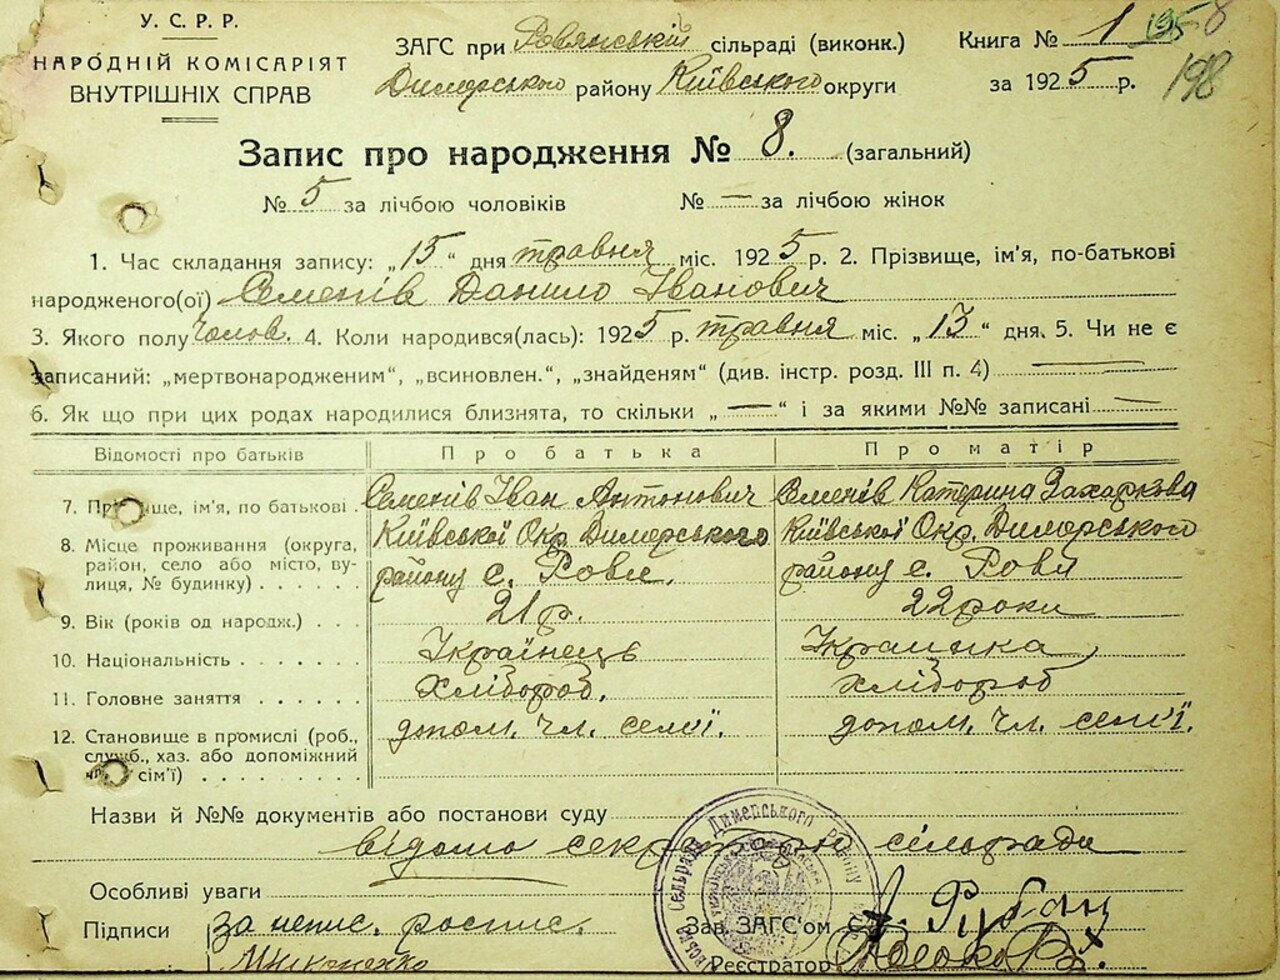 У. С. Р. Р.
НАРОДНІЙ КОМІСАРІЯТ
ВНУТРІШНІХ СПРАВ
ЗАГС при Ровянській сільраді (виконк.)
Димерського району Київського округи
Книга № 1
за 1925 р.
198
Запис про народження № 8. (загальний)
№ 5 за лічбою чоловіків № — за лічбою жінок
1. Час складання запису: „15“ дня травня міс. 1925 р. 2. Прізвище, ім'я, по-батькові
народженого(ої) Семенів Данило Іванович
3. Якого полу чолов. 4. Коли народився(лась): 1925 р. травня міс. „13“ дня. 5. Чи не є
записаний: „мертвонародженим“, „всиновлен.“, „знайденям“ (див. інстр. розд. III п. 4) —
6. Як що при цих родах народилися близнята, то скільки „—“ і за якими №№ записані —
Відомості про батьків Про батька Про матір
7. Прізвище, ім'я, по батькові . Семенів Іван Антонович Семенів Катерина Захаркова
8. Місце проживання (округа, район, село або місто, вулиця, № будинку) . . . . . . Київської Окр. Димерського району с. Ровя. Київської Окр. Димерського району с. Ровя
9. Вік (років од народж.) . . . 21 р. 22 роки
10. Національність . . . . . . . Українець Украинка
11. Головне заняття . . . . . . Хлібороб. хлібороб
12. Становище в промислі (роб., служб., хаз. або допоміжний чл. сім'ї) . . . . . . . . . допом. чл. семї. допом. чл. семї.
Назви й №№ документів або постанови суду
відомо секретарю сільради
Особливі уваги
Підписи за непис. роспис.
Зав. ЗАГС'ом
Реєстратор
Сельрада Димерського району